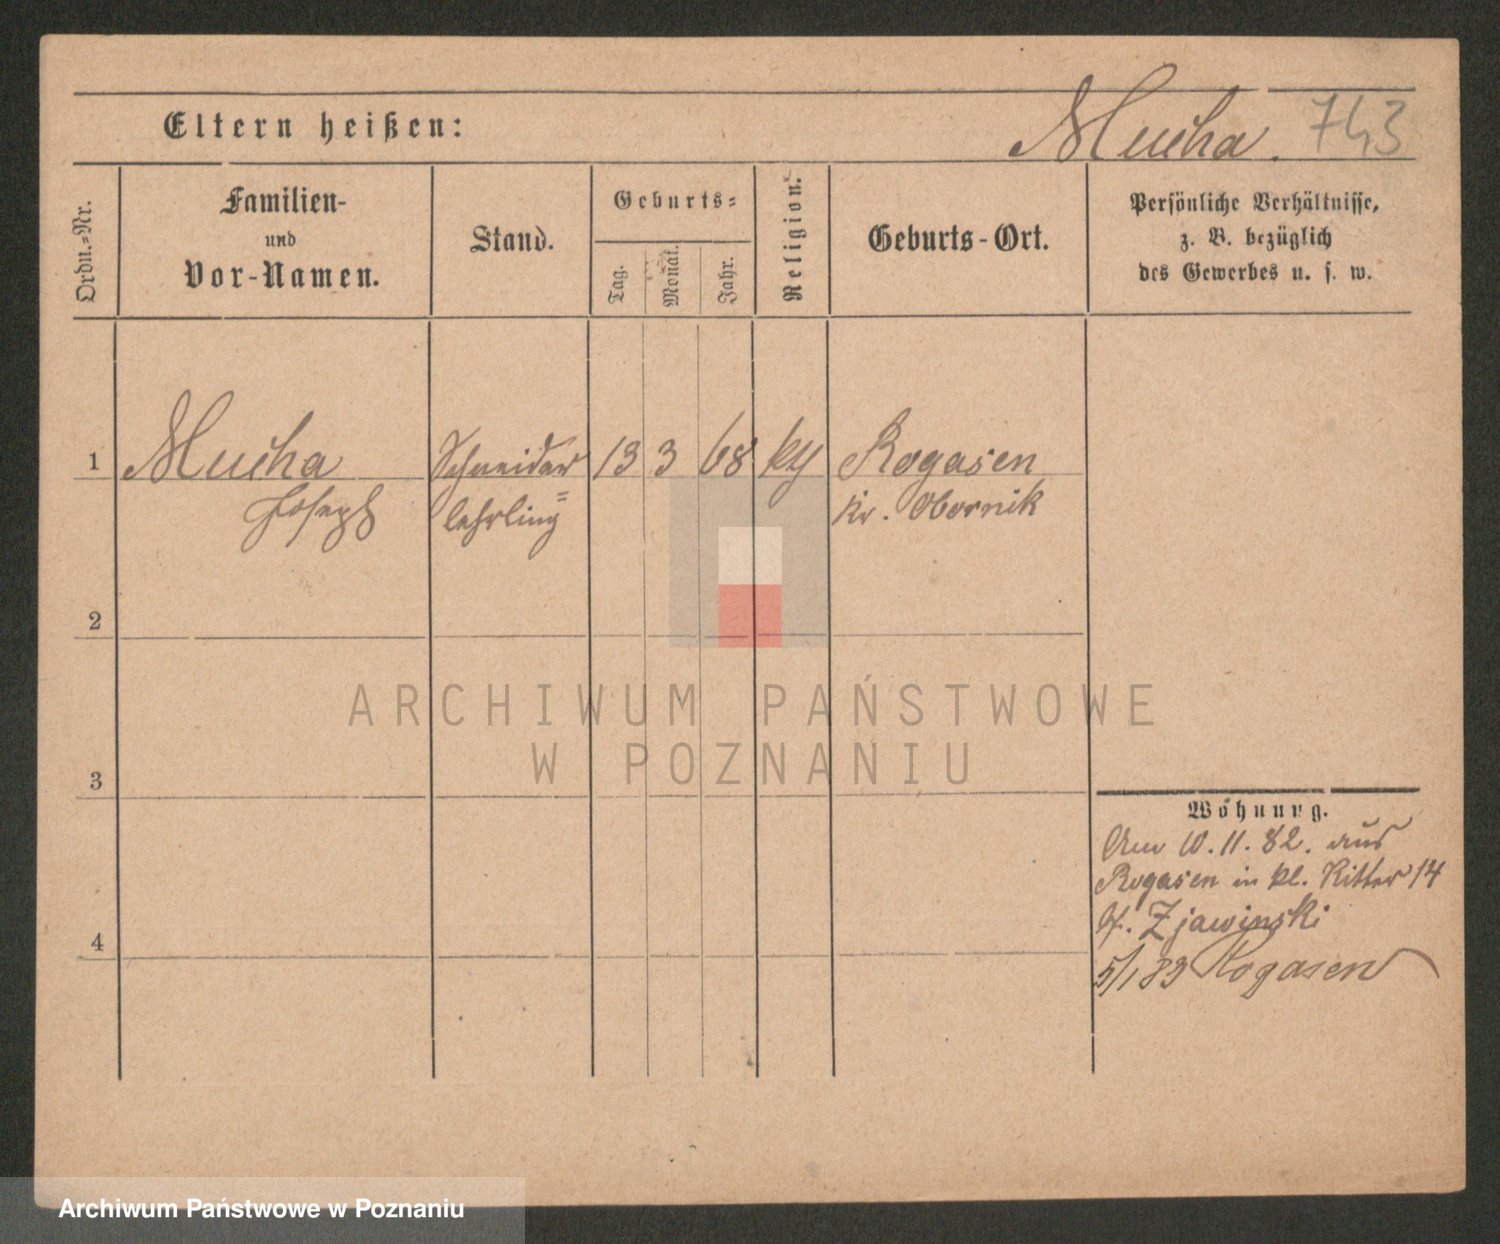 Eltern heißen:
Mucha. 743
Ordn.=Nr.
Familien-
und
Vor-Namen.
Stand.
Geburts=
Tag.
Monat.
Jahr.
Religion.
Geburts-Ort.
Persönliche Verhältnisse,
z. B. bezüglich
des Gewerbes u. s. w.
1 Mucha Schneider 13 3 68 Rogasen
Joseph lehrling Kr. Obornik
2
3
4
Wohnung.
Am 10. 11. 82. aus
Rogasen in kl. Ritter 14
b. Zjawinski
5/1 83 Rogasen
ARCHIWUM PAŃSTWOWE
W POZNANIU
Archiwum Państwowe w Poznaniu